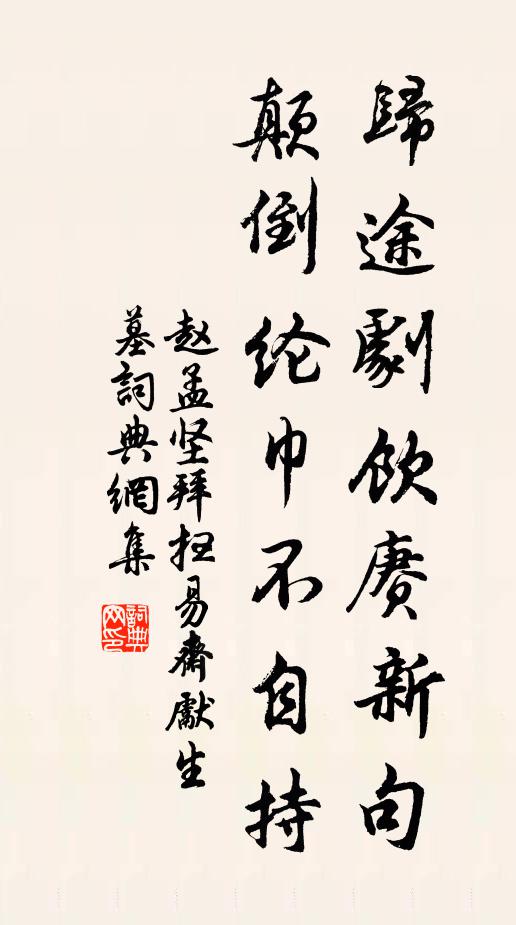 歸途劇飲賡新句
顛倒纶巾不自持
赵孟坚拜扫易齋獻生
墓詞典網集
詞典
网印